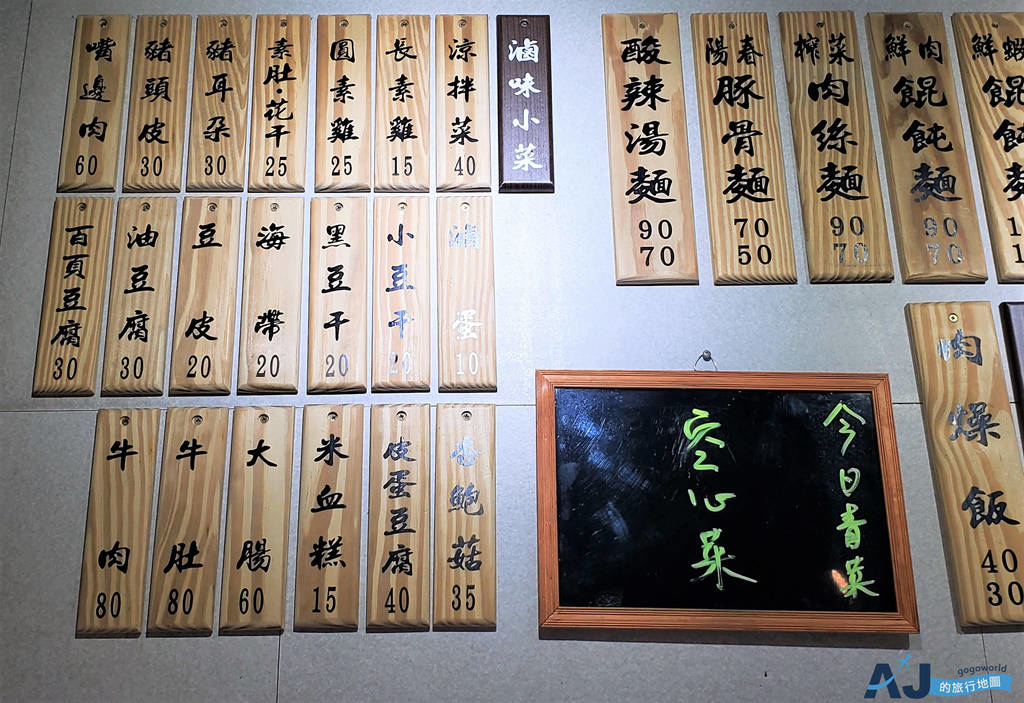 鮮蝦餛飩麵
鮮肉餛飩麵
90
70
榨菜肉絲麵
90
70
陽春豚骨麵
70
50
酸辣湯麵
90
70
肉燥飯
40
30
滷味小菜
涼拌菜
40
長素雞
15
圓素雞
25
素肚·花干
25
豬耳朵
30
豬頭皮
30
嘴邊肉
60
滷蛋
10
小豆干
20
黑豆干
20
海帶
20
豆皮
20
油豆腐
30
百頁豆腐
30
杏鮑菇
35
皮蛋豆腐
40
米血糕
15
大腸
60
牛肚
80
牛肉
80
今日青菜
空心菜
AJ gogoworld
的旅行地圖